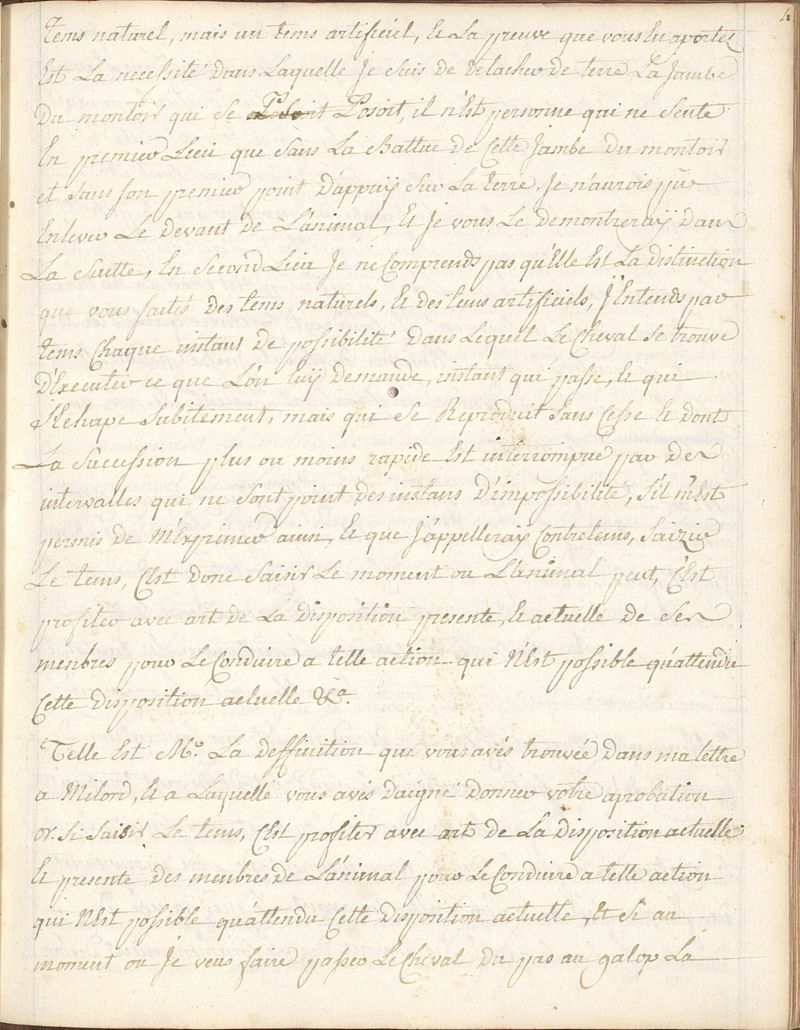 4
tems naturel, mais un tems artificiel, & La preuve que vous En aportez
Est La necessité dans Laquelle Je suis de detacher de terre La Jambe
Du montoir qui se Posoit, il n'Est personne qui ne sente
En premier Lieu que sans La Battue de Cette Jambe Du montoir
et sans son premier point D'appuÿ sur La terre, Je n'aurois pû
Enlever Le devant de L'animal, Et Je vous Le demontreraÿ dans
La suitte, En second Lieu Je ne Comprends pas qu'Elle Est La distinction
que vous faités Des tems naturels, & des tems artificiels, J'Entends par
tems Chaque instant de possibilité Dans Lequel Le Cheval se trouve
D'Executer ce que L'on luÿ Demande, instant qui passe, & qui
s'Echape subitement, mais qui se Reproduit sans Cesse & dont
La succession plus ou moins rapide Est interrompue par des
intervalles qui ne sont point des instans D'impossibilité, s'il m'Est
permis de M'Exprimer ainsi, Et que J'appelleraÿ Contretems, Saizir
Le tems, C'Est donc saisir Le moment ou L'animal peut, C'Est
profiter avec art de La Disposition presente, & actuelle de ses
menbres pour Le Conduire a telle action qui N'Est possible qu'attendu
Cette disposition actuelle &ca.
Telle Est Mr. La deffinition que vous avés trouvée Dans ma lettre
a Milord, & a Laquelle vous avés Daigné Donner votre aprobation
or. si saisir Le tems, C'Est profiter avec art de La Disposition actuelle
& presente des menbres de L'animal pour Le Conduire a telle action
qui N'Est possible qu'attendu Cette Disposition actuelle, Et si au
moment ou Je veus faire passer Le Cheval Du pas au galop La